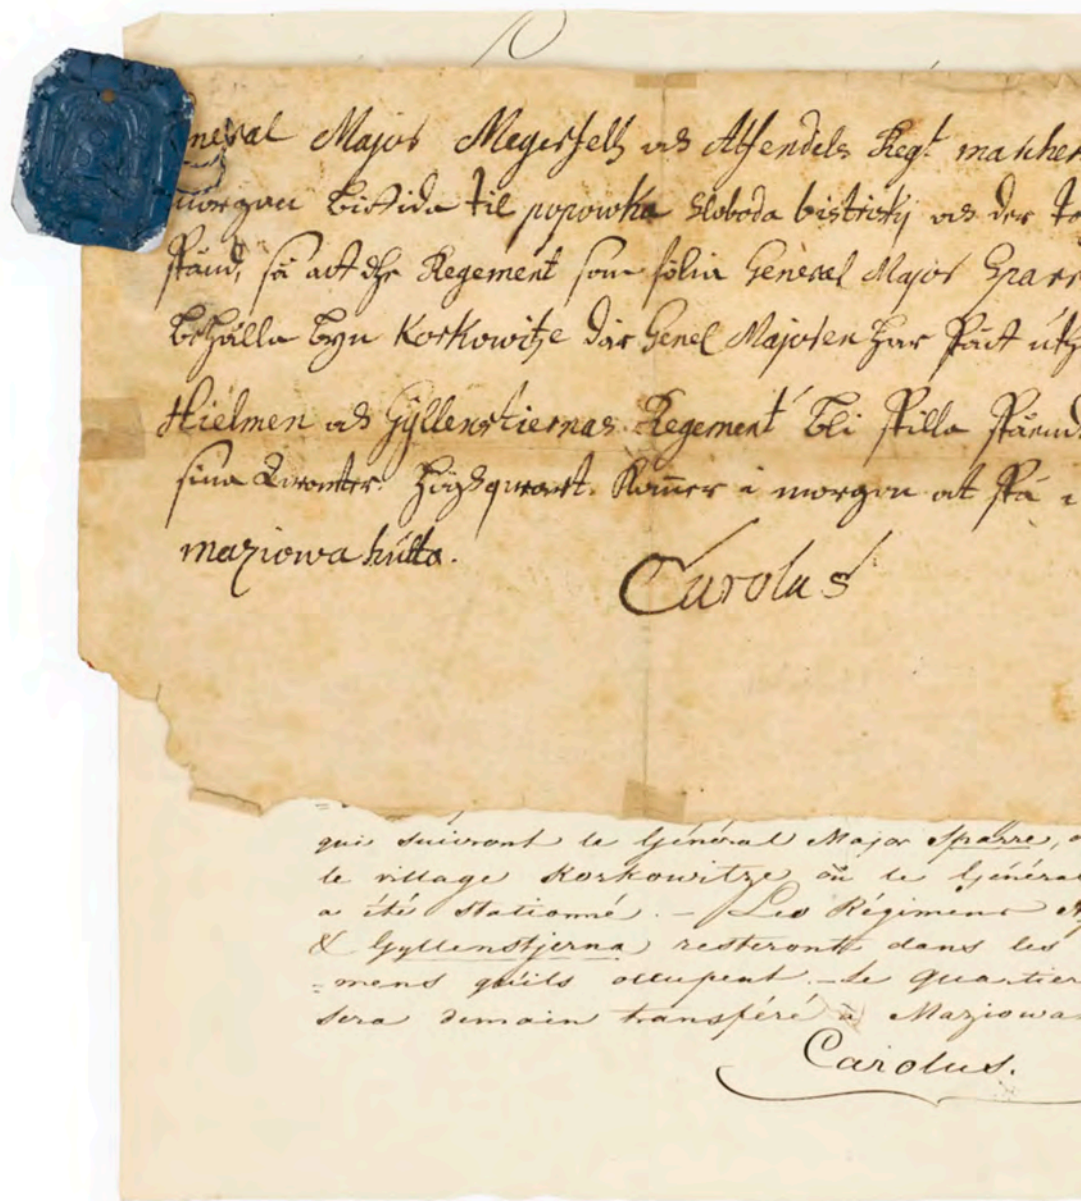 General Major Meyerfelt och Alfendels Regt. marcher
morgon bittida til popowka Sloboda bistrickÿ och der
stånd, så att dhe Regement som fölia General Major Sparr
behålla byn Korkowitze där Genel Majoren har ståt
Hielmen och Gÿllenstiernas Regement bli stilla
sina quarter. Kommer i morgon at stå i
maziowa hutta.
Carolus
qui suivront le Général Major Sparre,
le village Korkowitze où le Général
a été stationné. - Les Régimens
& Gyllenstjerna resteront dans les
=mens qu'ils occupent. - Le Quartier
sera demain transféré à Maziowa
Carolus.